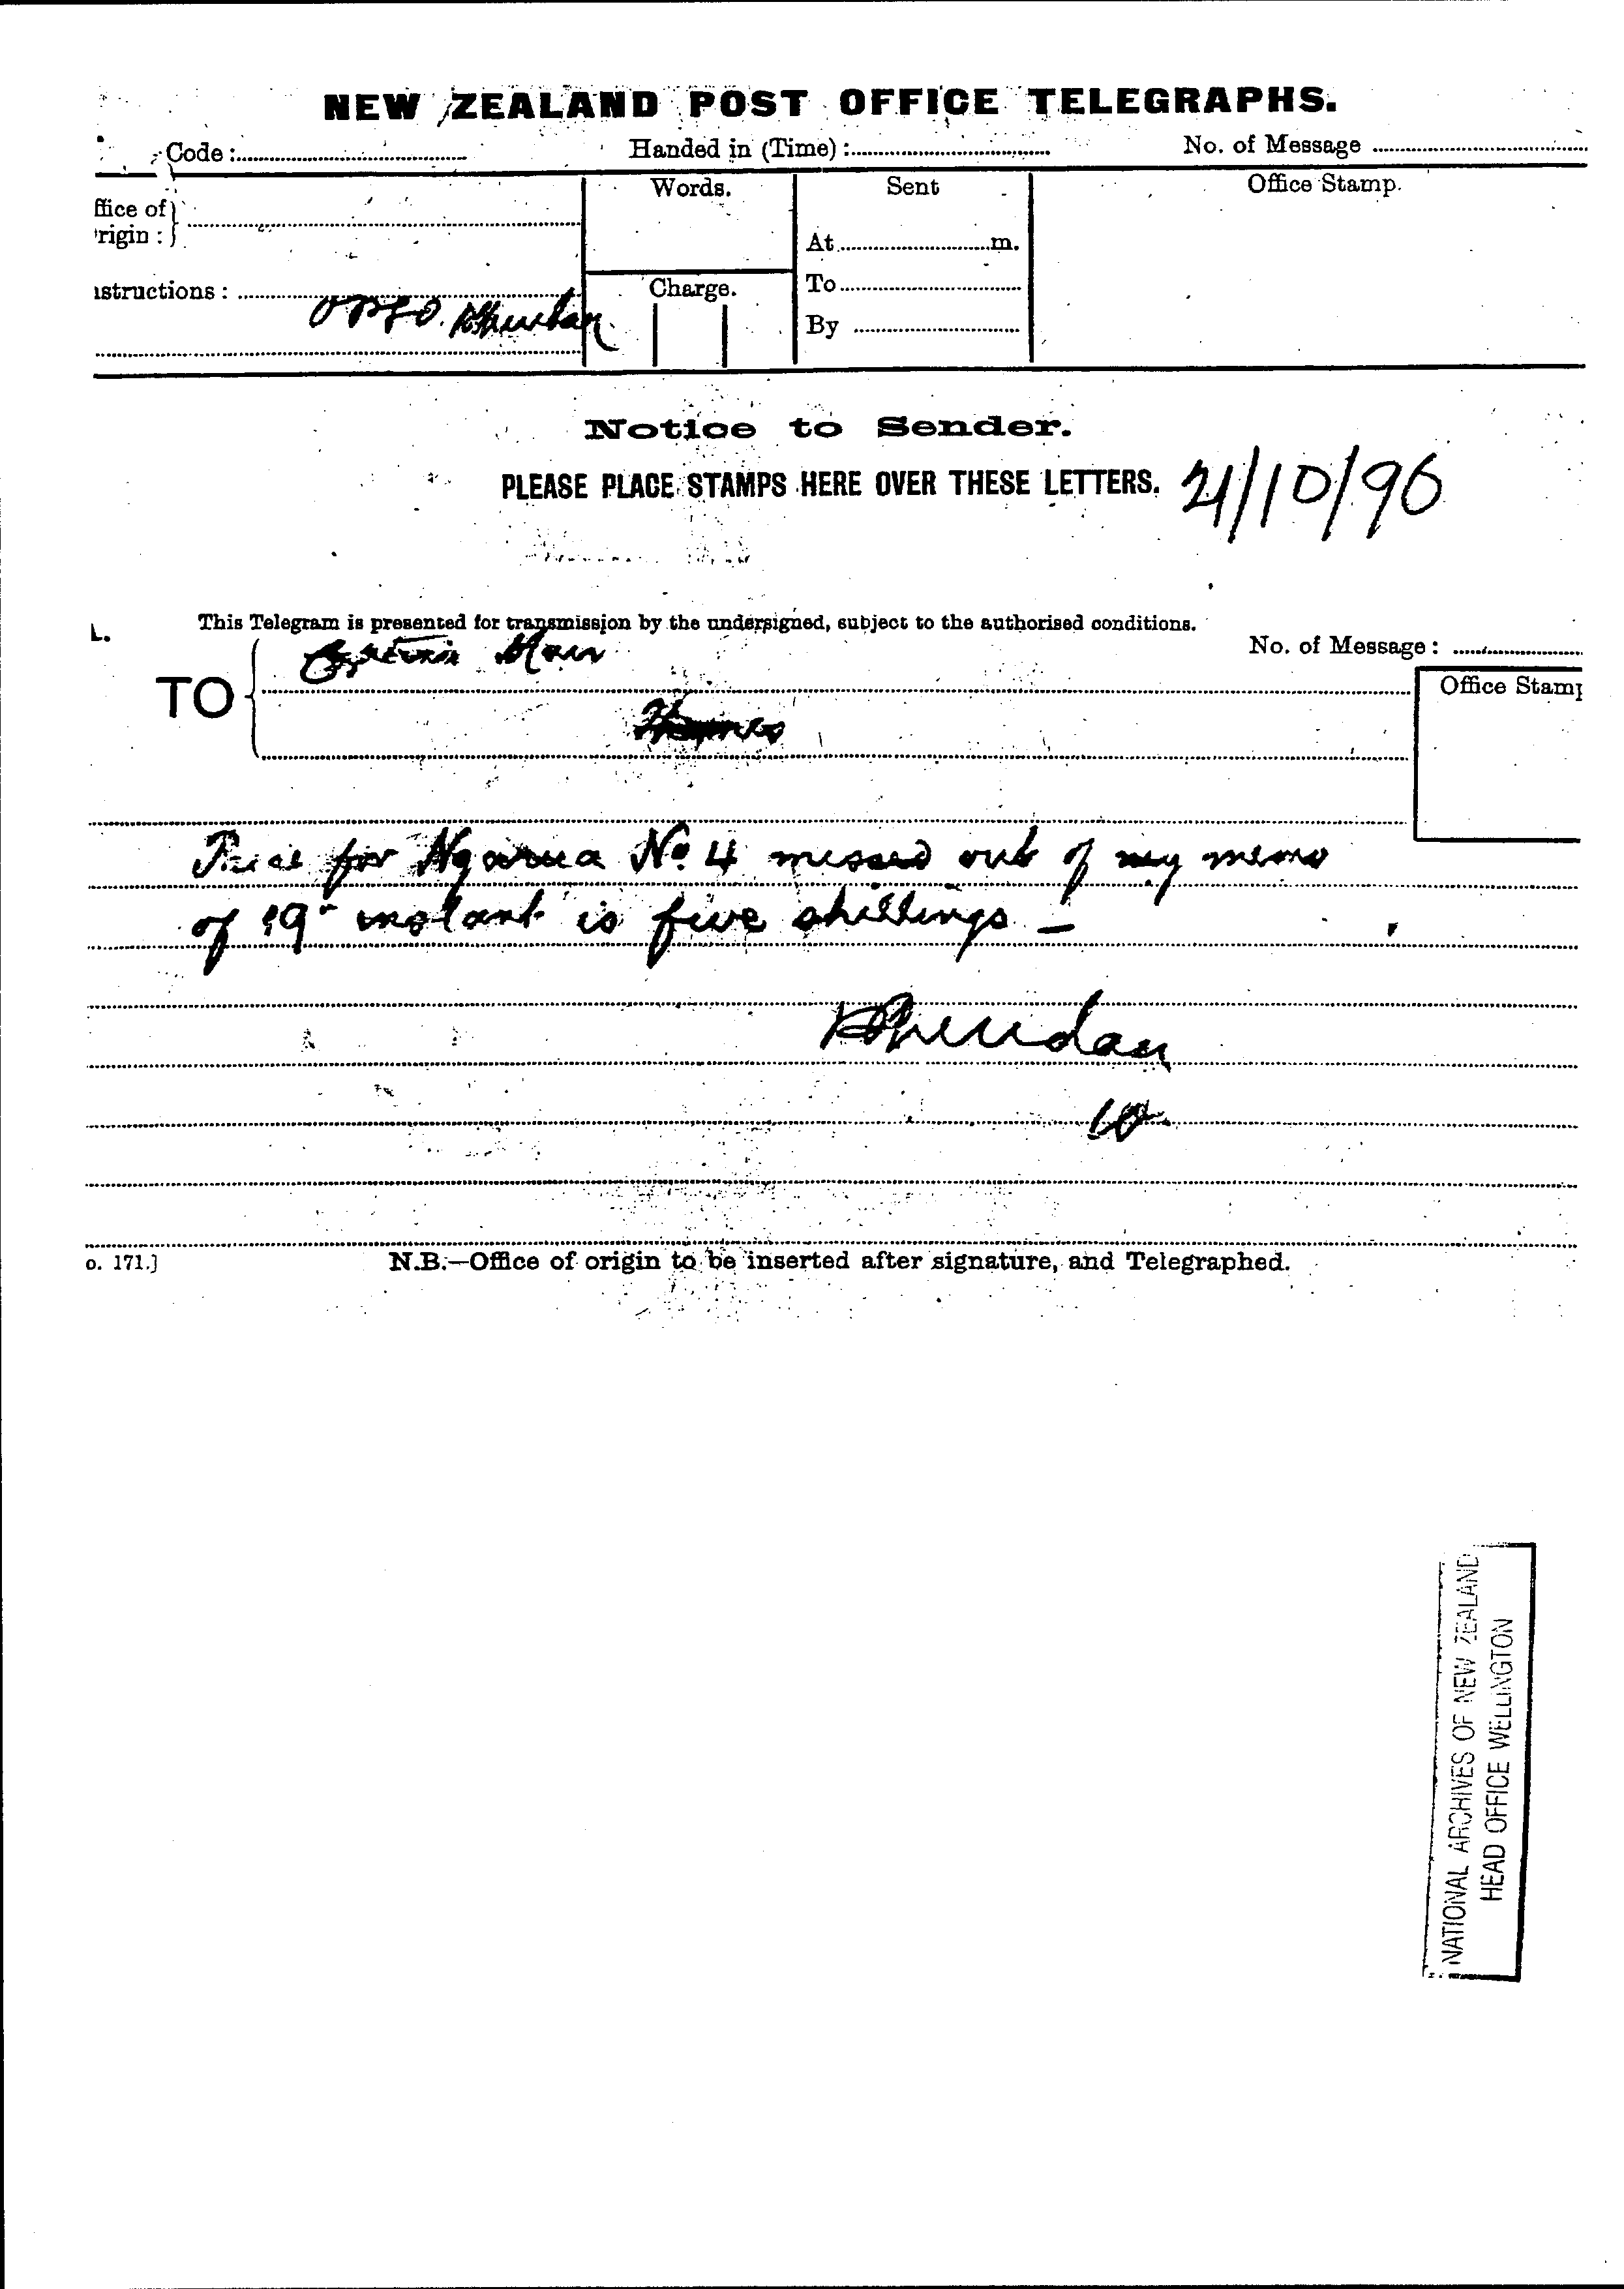 NEW ZEALAND POST OFFICE TELEGRAPHS.
Code : Handed in (Time) : No. of Message
ffice of
rigin :
Words.
Sent
Office Stamp.
At m.
To
By
structions :
Charge.
Notice to Sender.
PLEASE PLACE STAMPS HERE OVER THESE LETTERS. 21/10/96
This Telegram is presented for transmission by the undersigned, subject to the authorised conditions.
L. No. of Message :
TO Captain Mair
Office Stam
Price for Ngarua No 4 missed out of my memo
of 19 instant is five shillings —
Sheridan
o. 171.] N.B.—Office of origin to be inserted after signature, and Telegraphed.
NATIONAL ARCHIVES OF NEW ZEALAND
HEAD OFFICE WELLINGTON